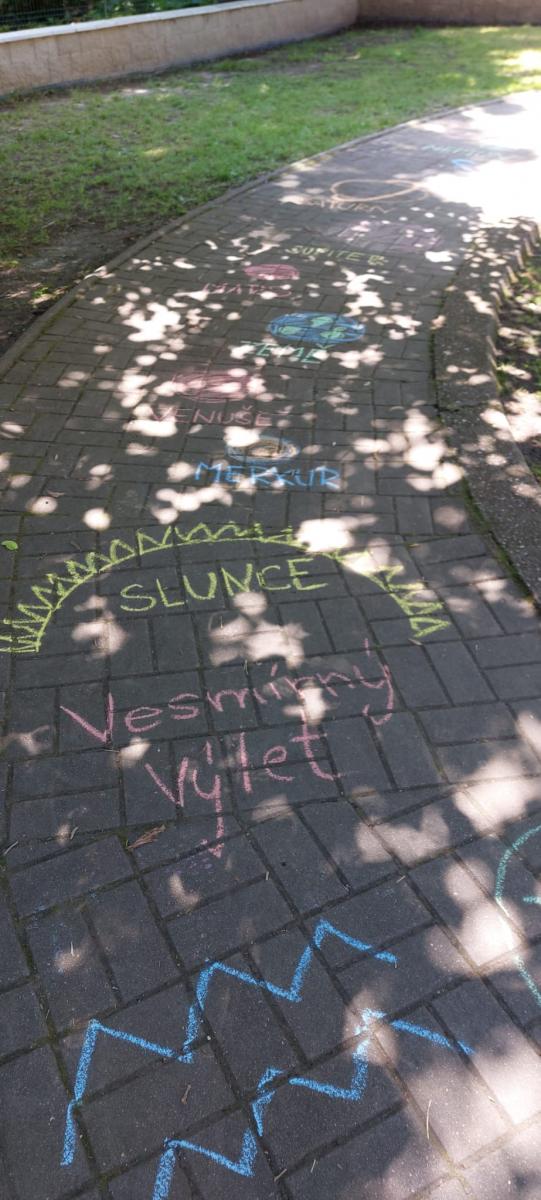 Vesmírný
výlet
SLUNCE
MERKUR
VENUŠE
ZEMĚ
MARS
JUPITER
SATURN